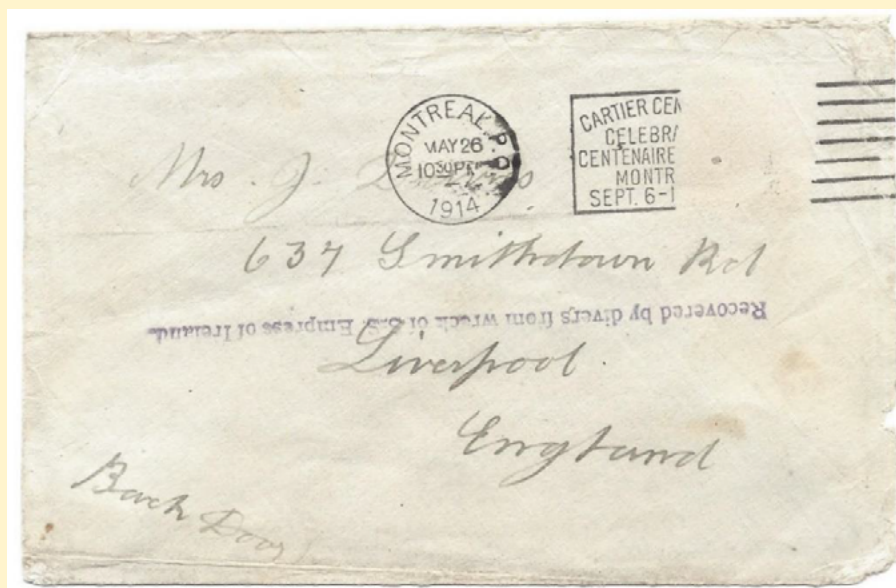 MONTREAL, P.Q.
MAY 26
10 30 PM
1914
CARTIER CEN
CELEBRA
CENTENAIRE
MONTR
SEPT. 6-1
Mrs. J.
637 Smithdown Rd
Recovered by divers from wreck of S.S. Empress of Ireland.
Liverpool.
England
Back Door